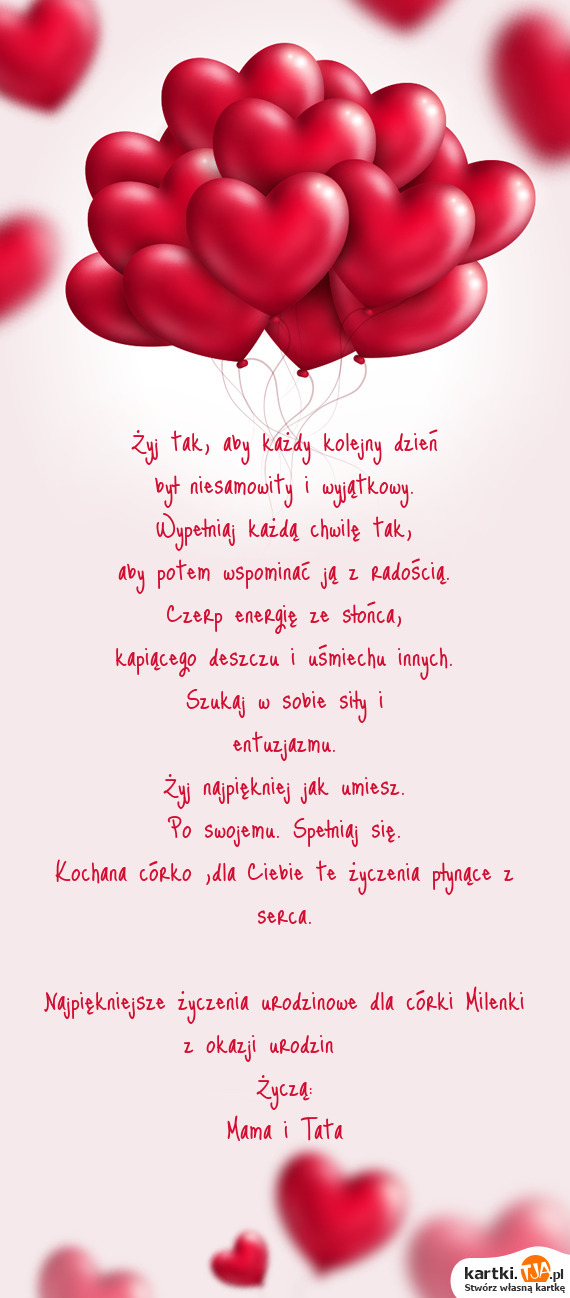 Żyj tak, aby każdy kolejny dzień
był niesamowity i wyjątkowy.
Wypełniaj każdą chwilę tak,
aby potem wspominać ją z radością.
Czerp energię ze słońca,
kapiącego deszczu i uśmiechu innych.
Szukaj w sobie siły i
entuzjazmu.
Żyj najpiękniej jak umiesz.
Po swojemu. Spełniaj się.
Kochana córko ,dla Ciebie te życzenia płynące z
serca.
Najpiękniejsze życzenia urodzinowe dla córki Milenki
z okazji urodzin
Życzą:
Mama i Tata
kartki.TJA.pl
Stwórz własną kartkę